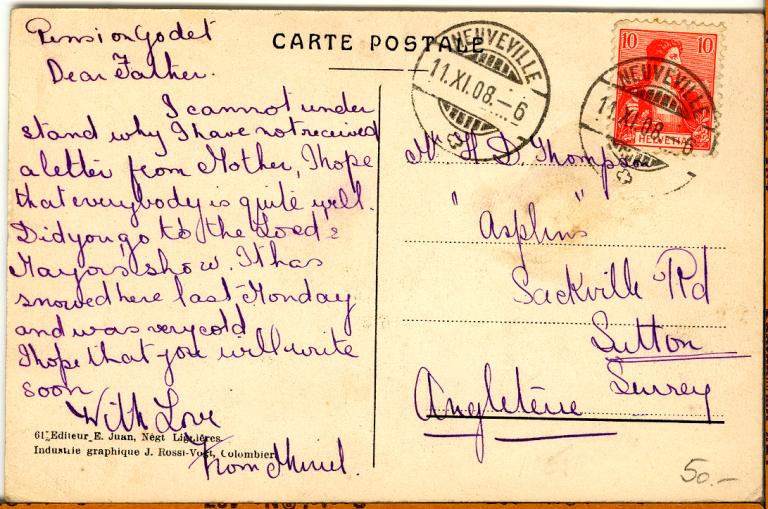 Pension Godet
CARTE POSTALE
Dear Father.
I cannot under
stand why I have not received
a letter from Mother, I hope
that everybody is quite well.
Did you go to the Lord's
Mayors show. It has
snowed here last Monday
and was very cold
I hope that you will write
soon
With Love
From Muriel.
61 Editeur E. Juan, Négt Lignières.
Industrie graphique J. Rossi-Vogt, Colombier
NEUVEVILLE
11.XI.08.-6
10 10
HELVETIA
NEUVEVILLE
11.XI.08.-6
Mr H D Thompson
"Asplins"
Sackville Rd
Sutton
Surrey
Angleterre
50.-